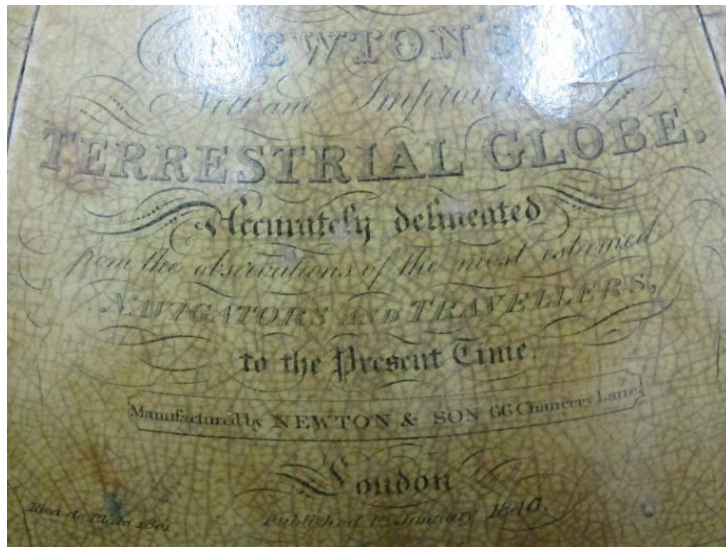 NEWTON'S
New and Improved
TERRESTRIAL GLOBE,
Accurately delineated
from the observations of the most esteemed
NAVIGATORS AND TRAVELLERS,
to the Present Time.
Manufactured by NEWTON & SON 66 Chancery Lane.
London
Published 1st January 1840.